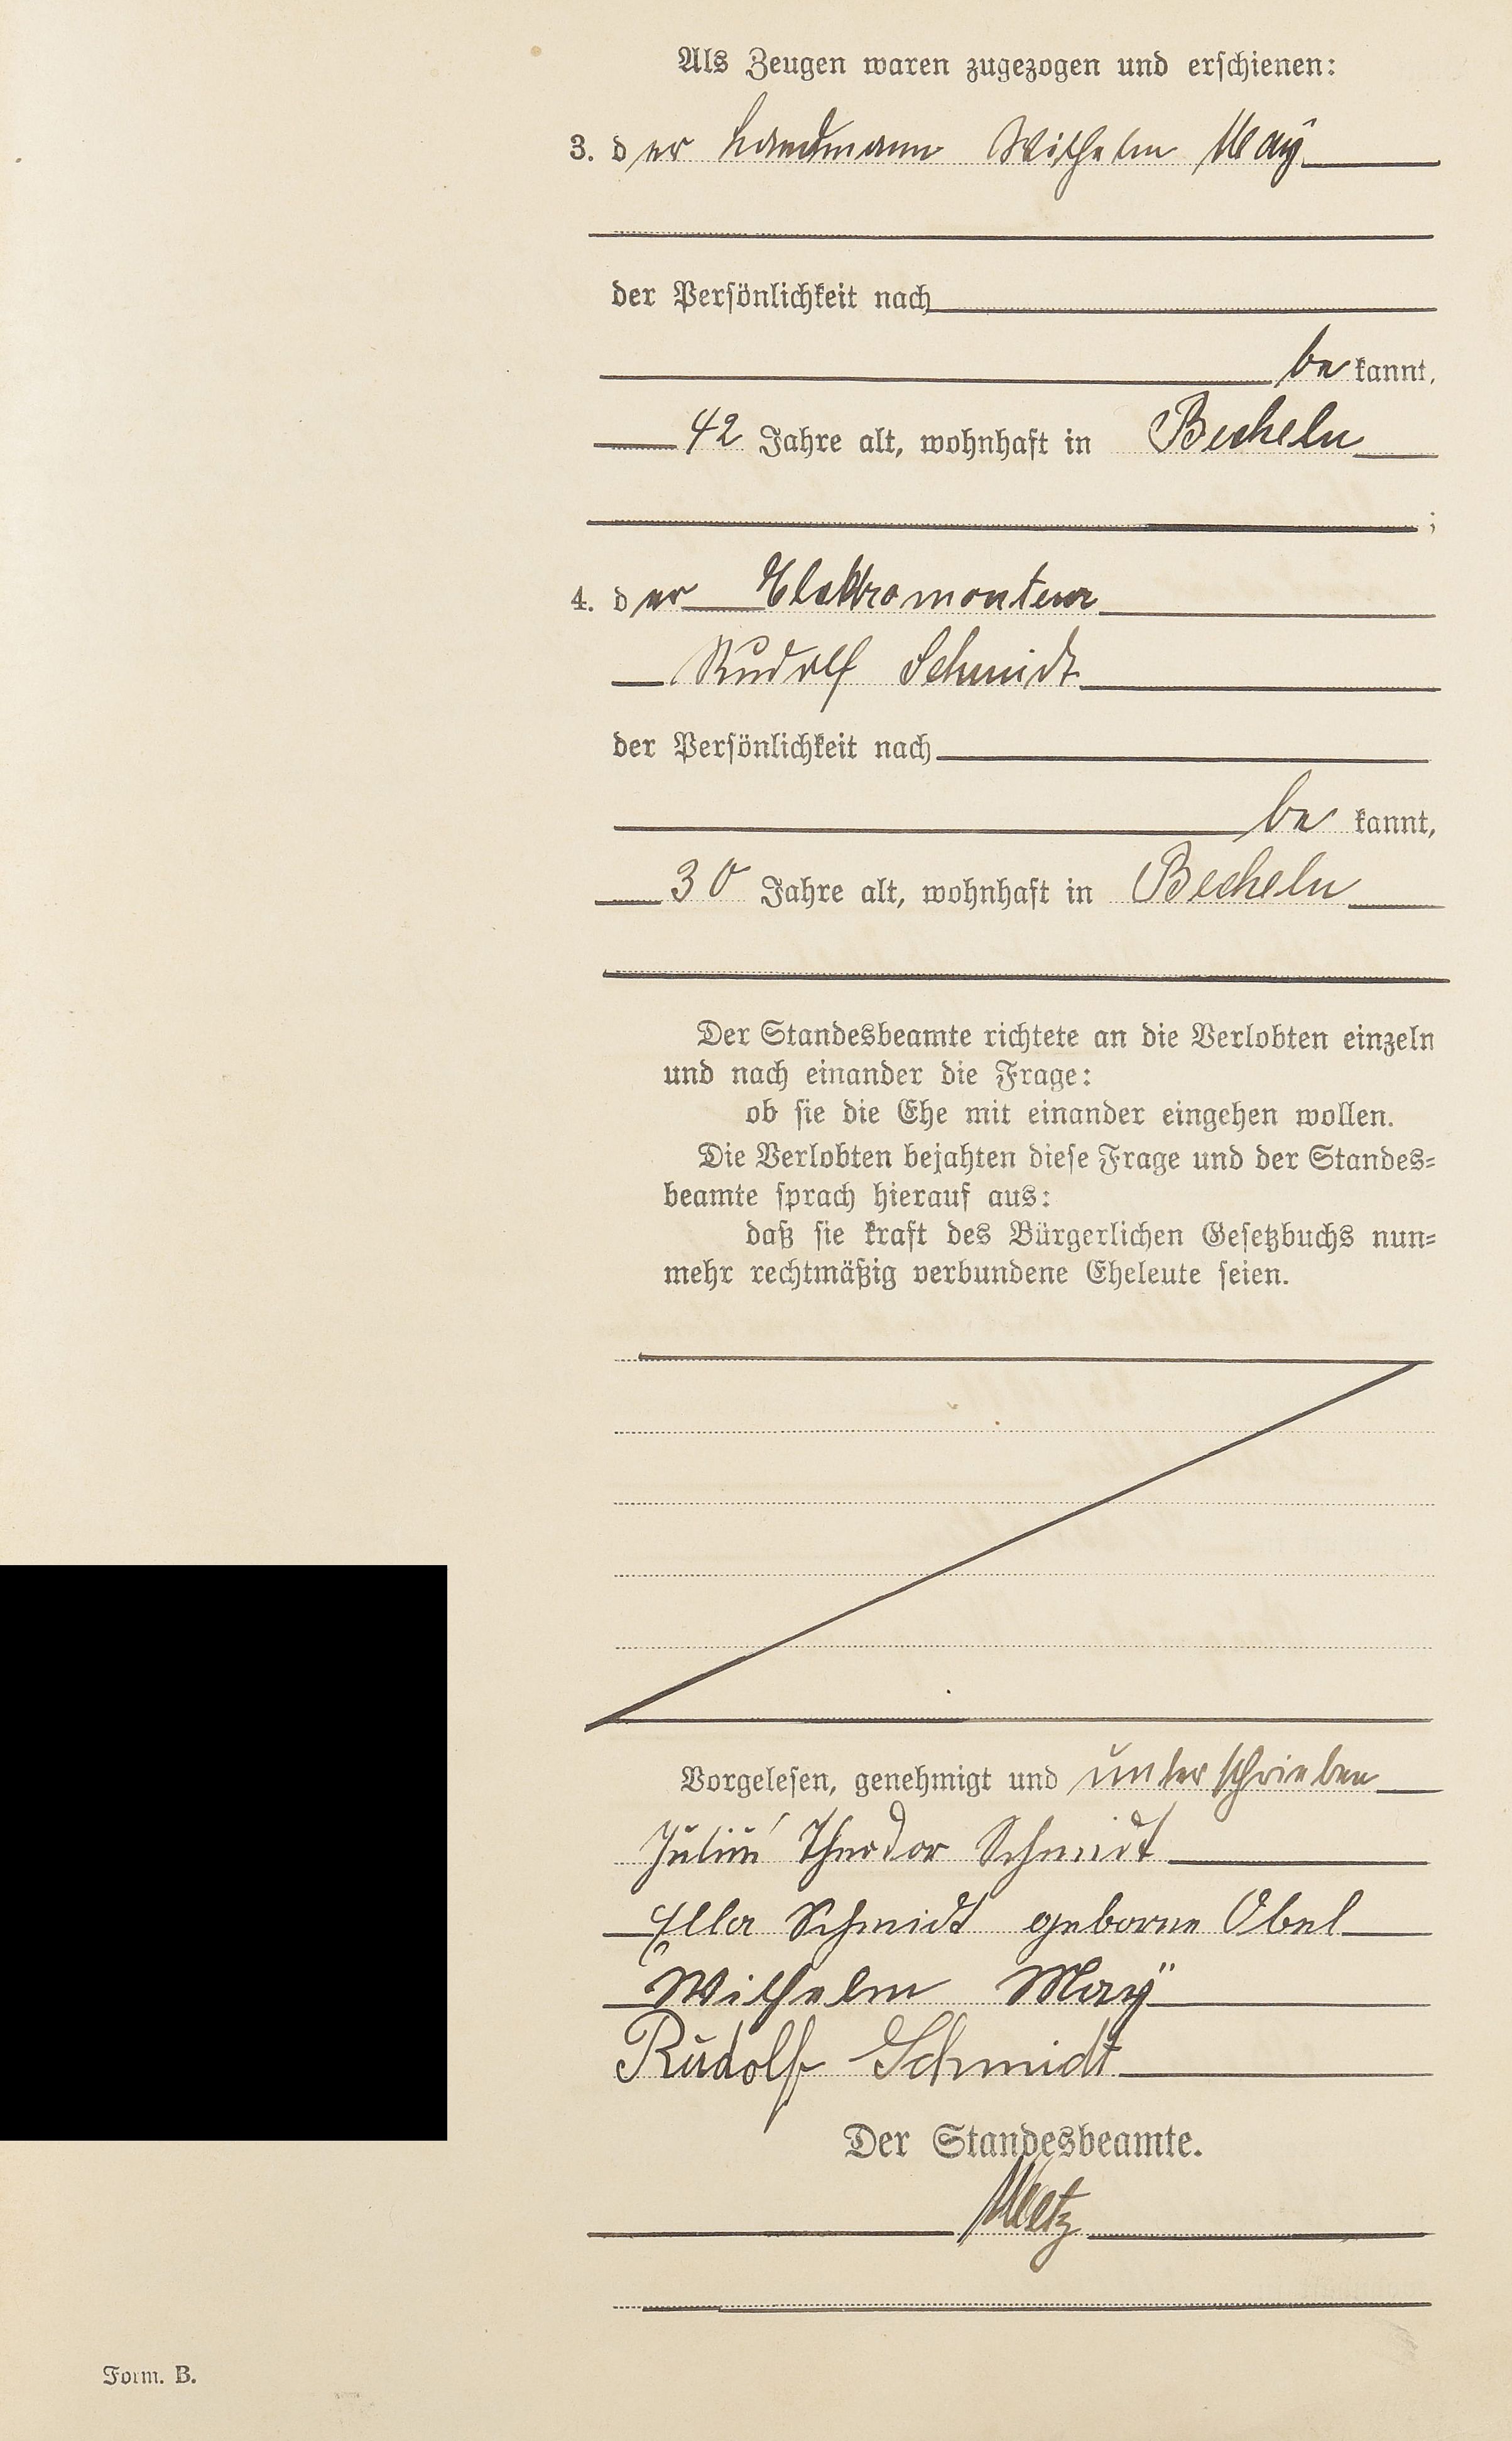 Als Zeugen waren zugezogen und erschienen:
3. der Landmann Wilhelm Maÿ
der Persönlichkeit nach
be kannt,
42 Jahre alt, wohnhaft in Becheln
;
4. der Elektromonteur
Rudolf Schmidt
der Persönlichkeit nach
be kannt,
30 Jahre alt, wohnhaft in Becheln
Der Standesbeamte richtete an die Verlobten einzeln
und nach einander die Frage:
ob sie die Ehe mit einander eingehen wollen.
Die Verlobten bejahten diese Frage und der Standes-
beamte sprach hierauf aus:
daß sie kraft des Bürgerlichen Gesetzbuchs nun-
mehr rechtmäßig verbundene Eheleute seien.
Vorgelesen, genehmigt und unterschrieben
Julius Theodor Schmidt
Ella Schmidt geborne Obel
Wilhelm Maÿ
Rudolf Schmidt
Der Standesbeamte.
Metz
Form. B.